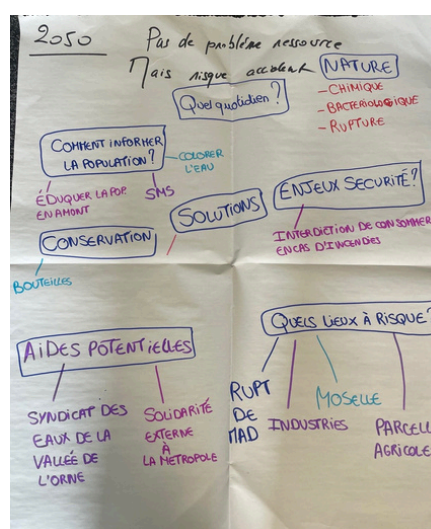 2050
Pas de problème ressource
Mais risque accident
NATURE
- CHIMIQUE
- BACTERIOLOGIQUE
- RUPTURE
Quel quotidien?
COMMENT INFORMER
LA POPULATION?
COLORER
L'EAU
ÉDUQUER LA POP
EN AMONT
SMS
SOLUTIONS
ENJEUX SECURITÉ?
INTERDICTION DE CONSOMMER
EN CAS D'INCENDIES
CONSERVATION
BOUTEILLES
AIDES POTENTIELLES
SYNDICAT DES
EAUX DE LA
VALLÉE DE
L'ORNE
SOLIDARITÉ
EXTERNE
À
LA METROPOLE
QUELS LIEUX À RISQUE?
RUPT
DE
MAD
INDUSTRIES
MOSELLE
PARCELL
AGRICOLE